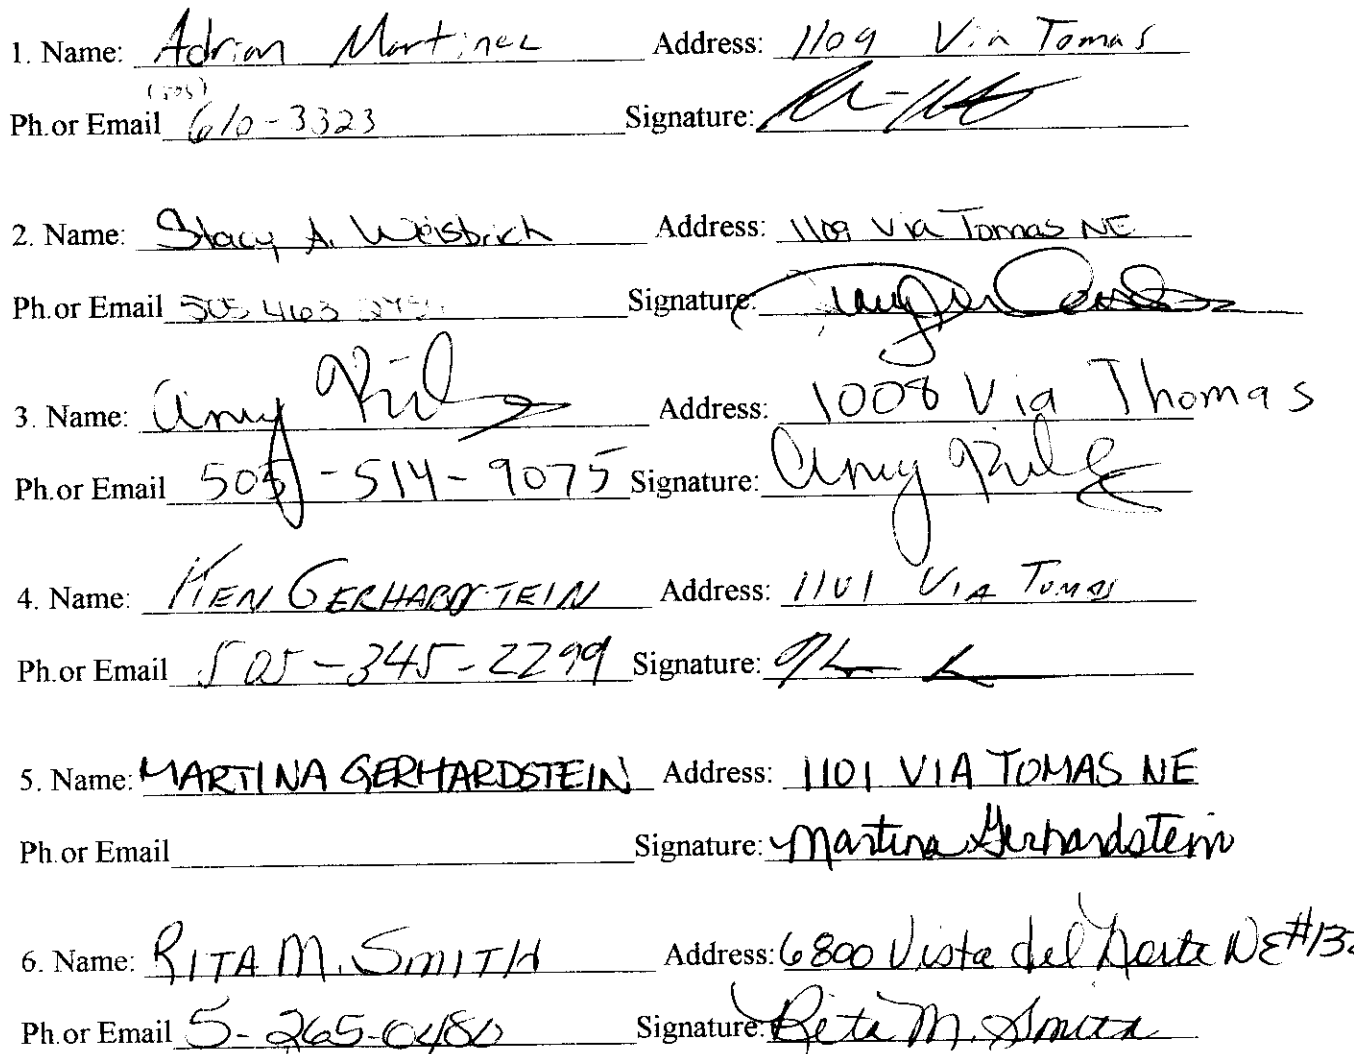 1. Name: Adrian Martinez Address: 1109 Via Tomas
(505)
Ph.or Email 610-3323 Signature:
2. Name: Stacy A. Weisbrich Address: 1109 Via Tomas NE
Ph.or Email 505 463 Signature:
3. Name: Amy Address: 1008 Via Thomas
Ph.or Email 505-514-9075 Signature: Amy
4. Name: KEN GERHARDSTEIN Address: 1101 VIA Tomas
Ph.or Email 505-345-2299 Signature:
5. Name: MARTINA GERHARDSTEIN Address: 1101 VIA TOMAS NE
Ph.or Email Signature: Martina Gerhardstein
6. Name: RITA M. SMITH Address: 6800 Vista del Norte NE
Ph.or Email 5-265-0480 Signature: Rita M. Smith